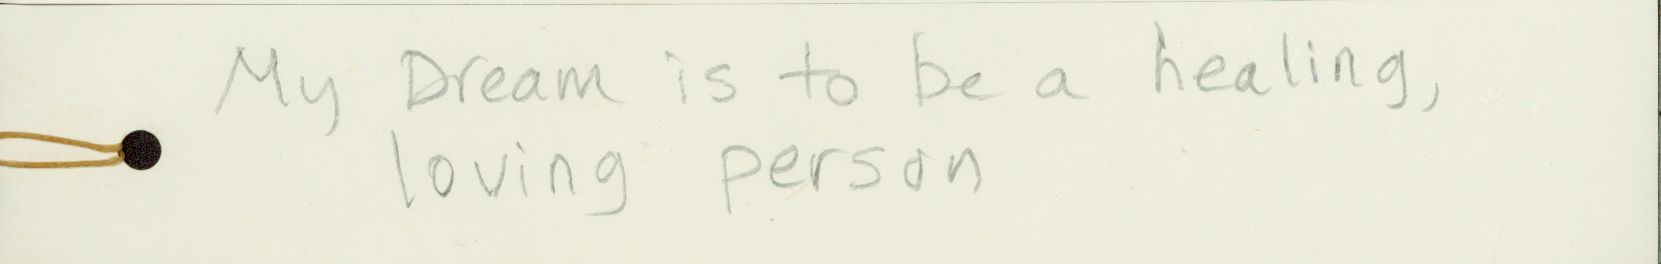 My Dream is to be a healing,
loving person